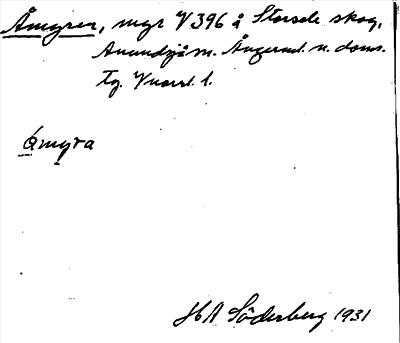 Åmyran, myr V 396 å Storsele skog,
Anundsjö sn. Ångerml. n. doms.
Tg. V norrl. l.
åmyra
HA Söderberg 1931